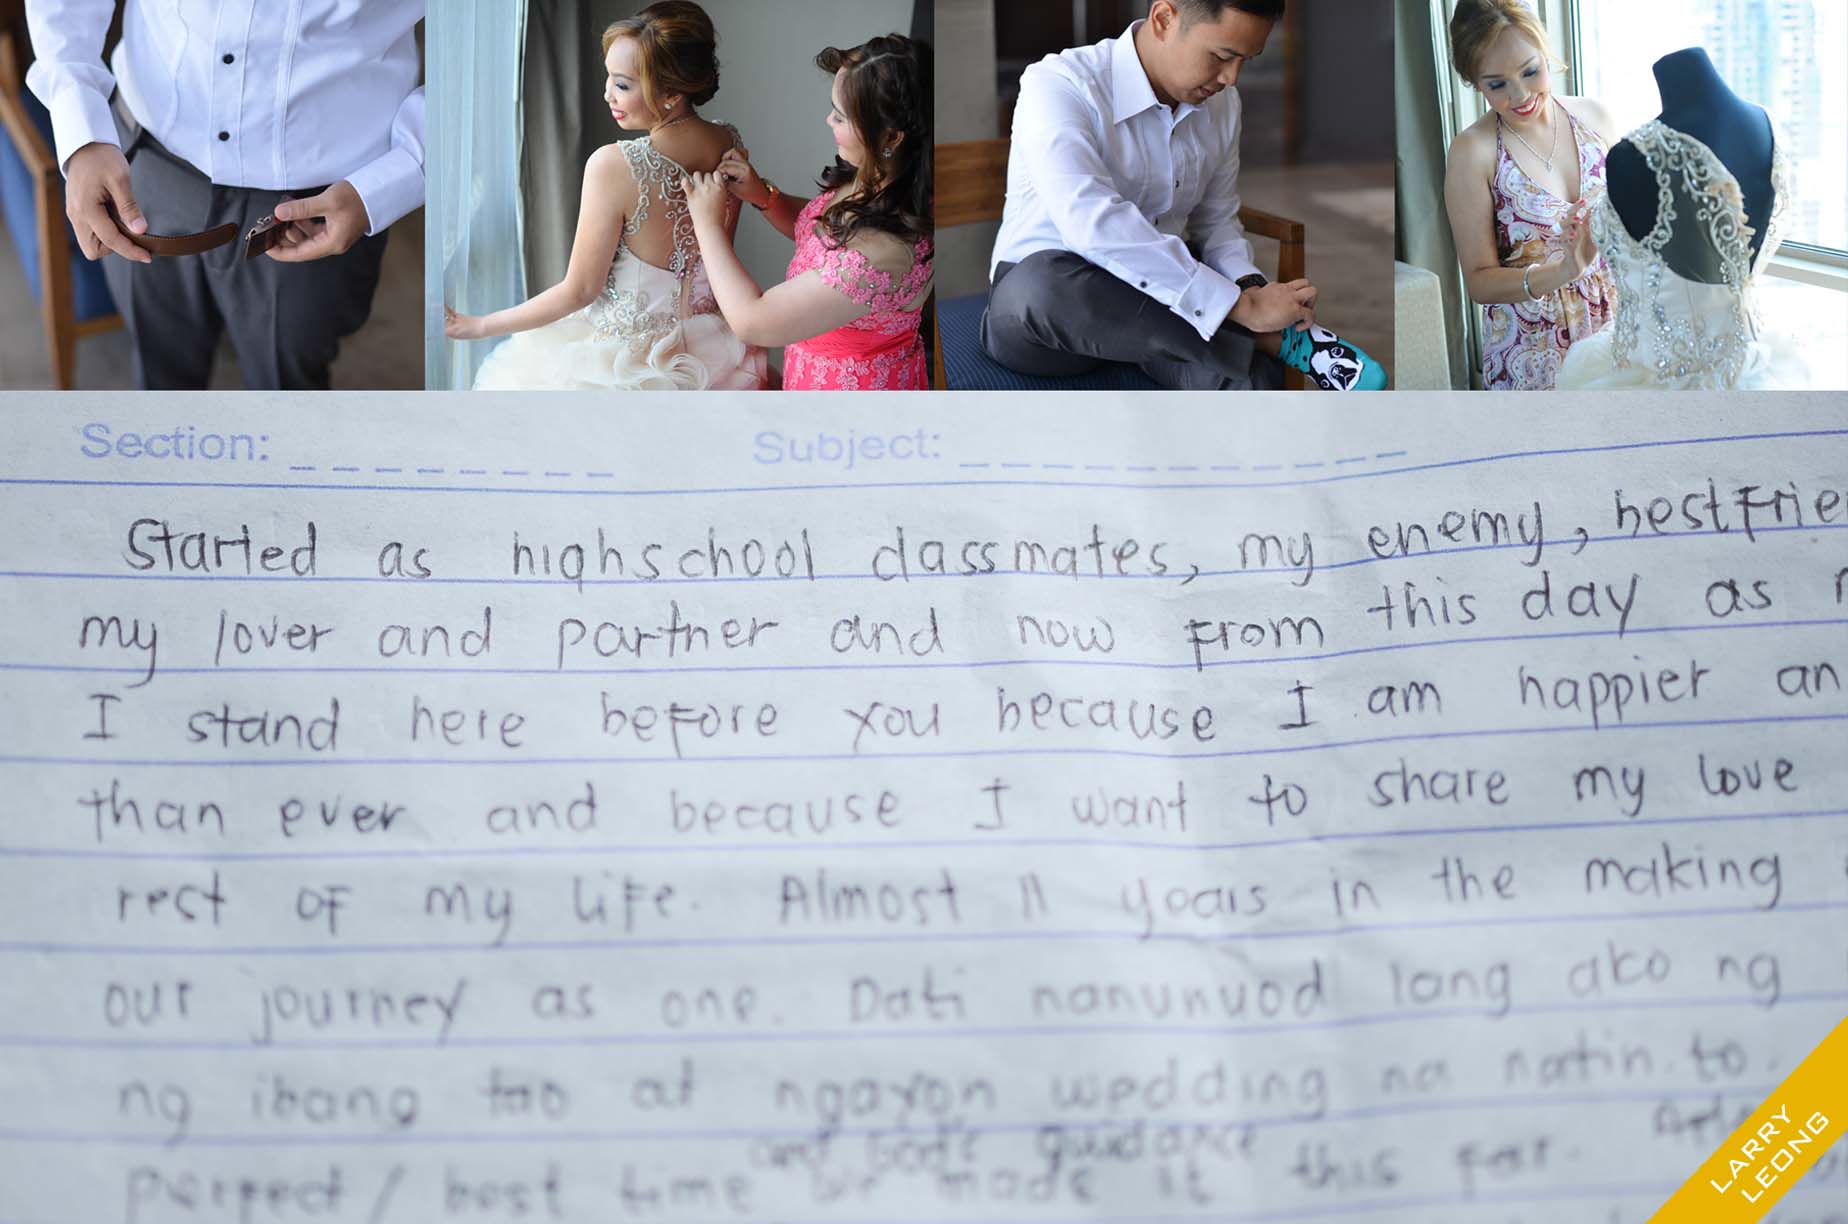 Section: _ _ _ _ _ _ _ _ Subject: _ _ _ _ _ _ _ _ _ _ _
Started as highschool classmates, my enemy, bestfrie
my lover and partner and now from this day as
I stand here before you because I am happier an
than ever and because I want to share my love
rest of my life. Almost 11 years in the making
our journey as one. Dati nanunuod lang ako ng
ng ibang tao at ngayon wedding na natin to.
and God's guidance
perfect / best time we made it this far.
LARRY
LEONG